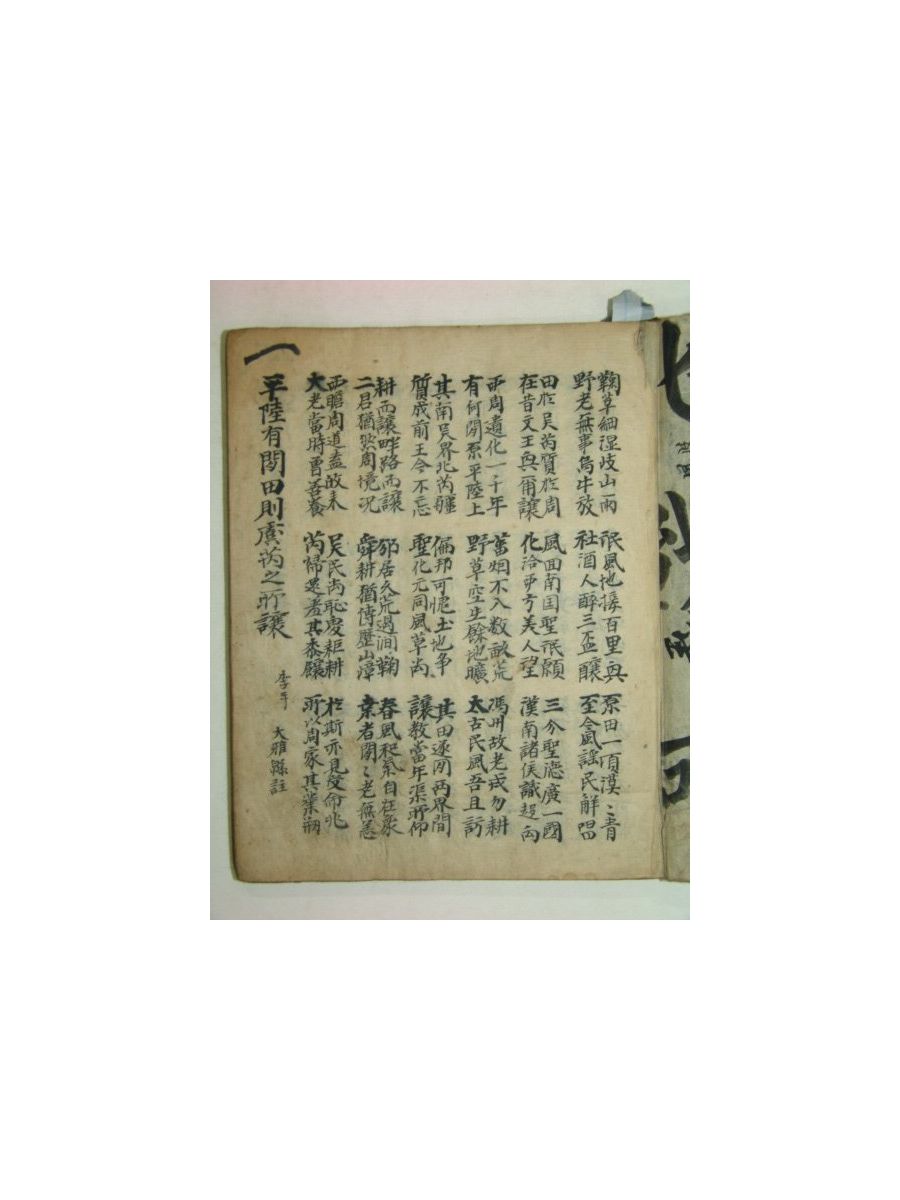 鞠草細湿岐山雨 地接百里與 原田一頃漠〻青
野老無事烏牛放 社酒人醉三盃釀 至今風謠民解唱
田於吳芮質於周 風面南国聖 願 三分聖德廣一國
在昔文王與甫讓 化洽西方美人望 漢南諸侯識趍向
西周遺化一千年 萬烟不入数畝荒 馮州故老戒勿耕
有何閑原平陸上 野草空生餘地曠 太古民風吾且訪
其南吳界北芮疆 偏邦可愧土地争 其田遂閑兩界間
質成前王今不忘 聖化元同風草尚 讓教當年渠所仰
耕而讓畔路而讓 邠居久荒過澗鞠 春風和氣自在象
二君猶然周境况 舜耕猶傳歷山漳 者閑〻老無恙
西瞻周道盍故来 吳民尚恥慶耜耕 於斯亦見受命兆
大老當時曽善養 芮帰還羞其黍饟 所以周家其業刱
平陸有閑田則虞芮之所讓
李 大雅緜註
一